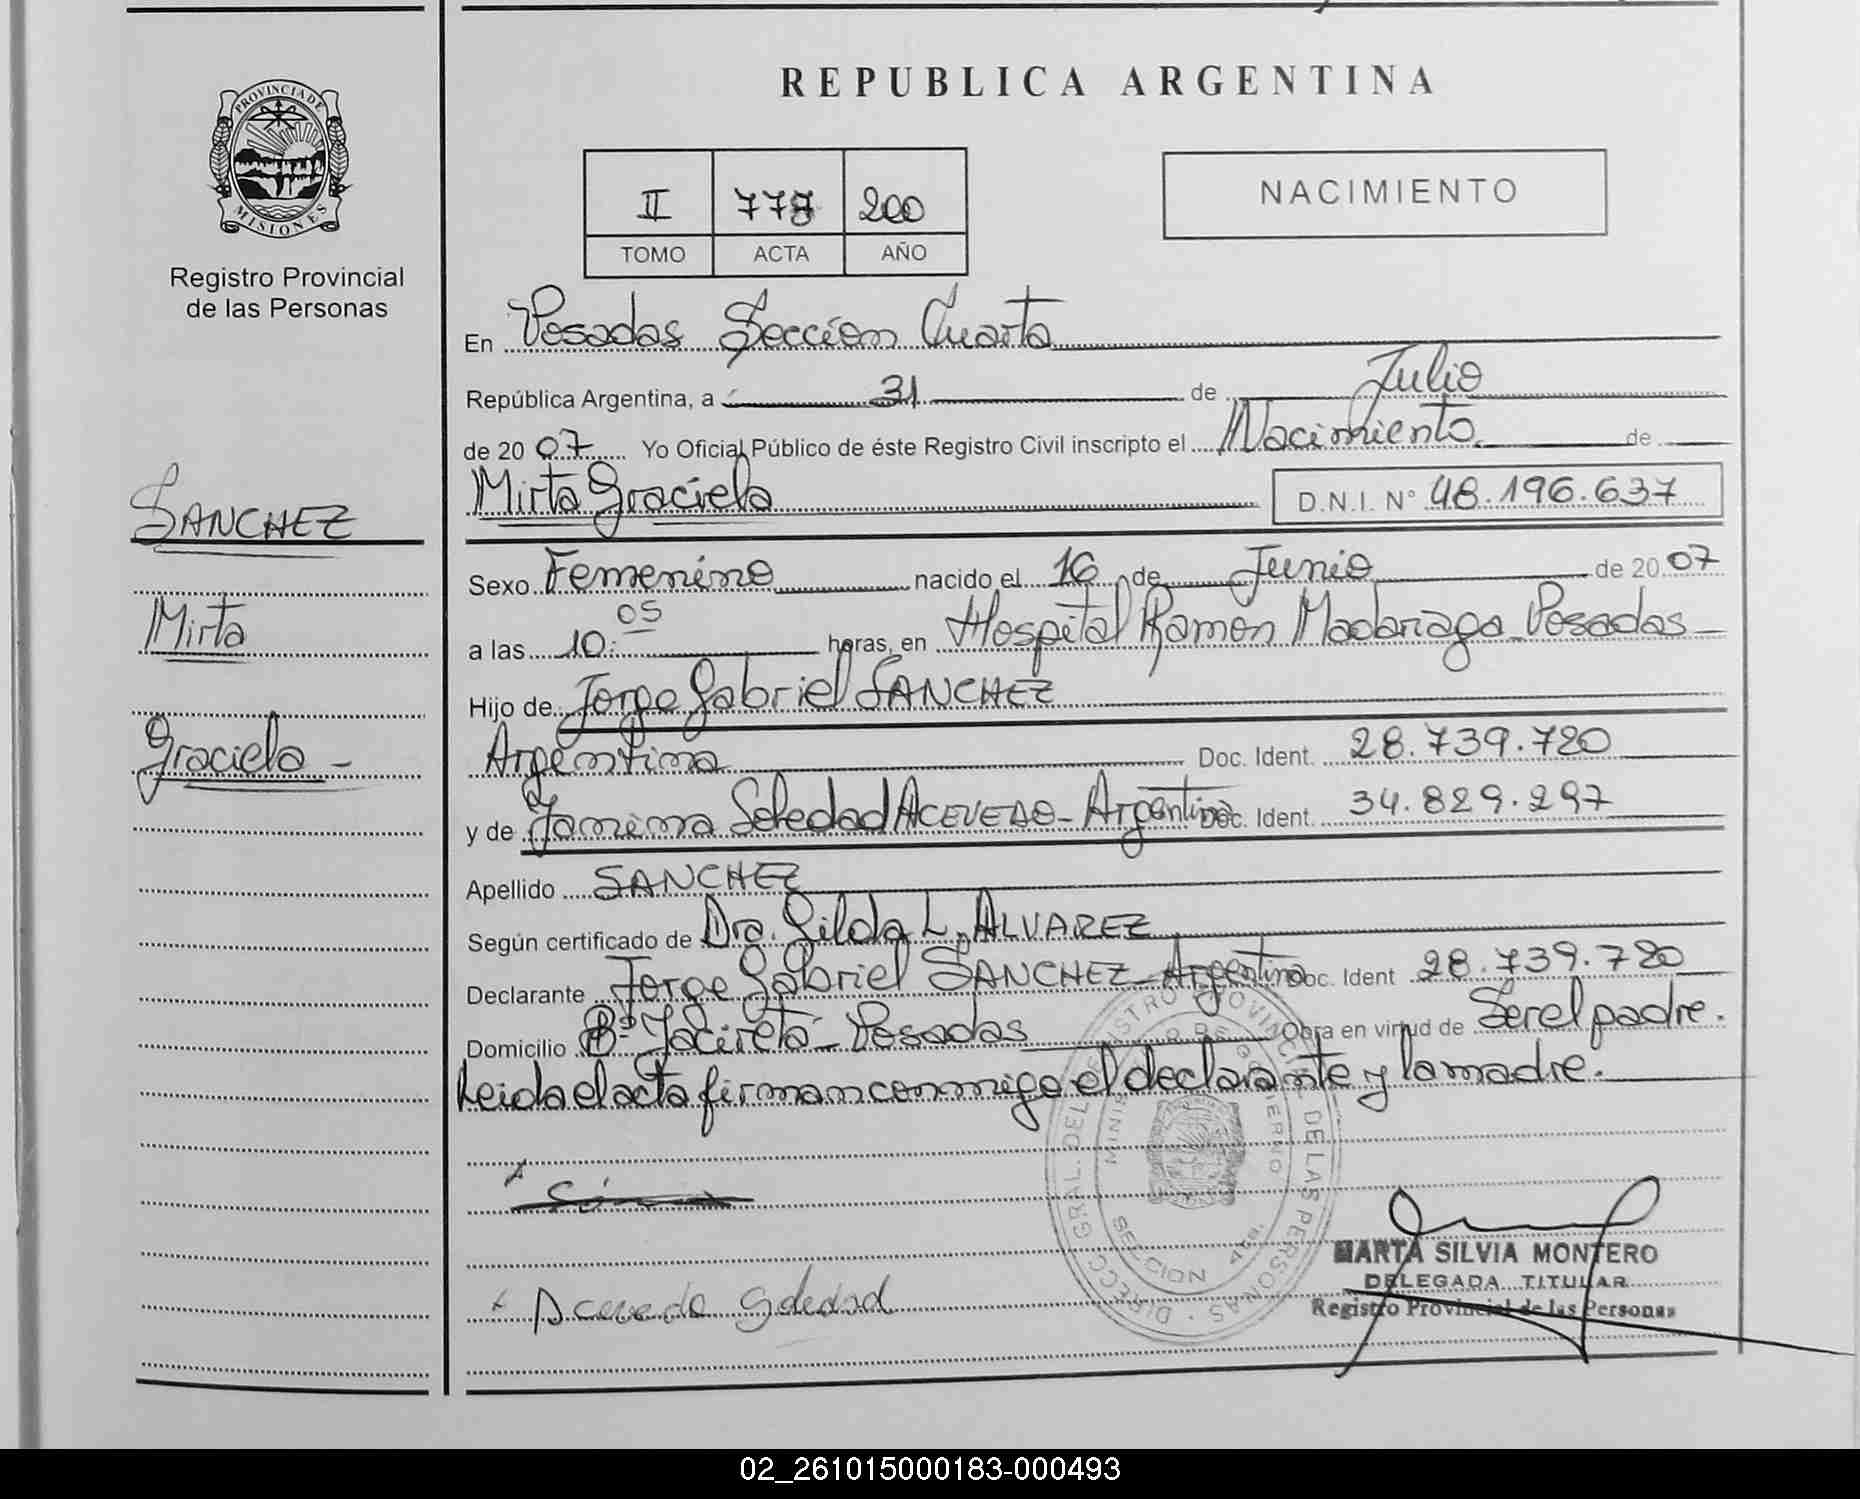 REPUBLICA ARGENTINA
PROVINCIA DE
MISIONES
Registro Provincial
de las Personas
II 778 200
TOMO ACTA AÑO
NACIMIENTO
En Posadas Sección Cuarta
República Argentina, a 31 de Julio
de 20 07 Yo Oficial Público de éste Registro Civil inscripto el Nacimiento de
Mirta Graciela D.N.I. N° 48.196.637
SANCHEZ
Mirta
Graciela -
Sexo Femenino nacido el 16 de Junio de 20 07
a las 10:05 horas, en Hospital Ramón Madariaga - Posadas -
Hijo de Jorge Gabriel SANCHEZ
Argentina Doc. Ident. 28.739.720
y de Yanina Soledad ACEVEDO - Argentina Doc. Ident. 34.829.297
Apellido SANCHEZ
Según certificado de Dra. Gilda L. ALVAREZ
Declarante Jorge Gabriel SANCHEZ - Argentino Doc. Ident 28.739.720
Domicilio B° Yacireta - Posadas Obra en virtud de Ser el padre.
Leida el acta firman conmigo el declarante y la madre.
DIRECC. GRAL. DEL REGISTRO PROVINCIAL DE LAS PERSONAS
MINISTERIO DE GOBIERNO
SECCION 4ta.
Acevedo Soledad
MARTA SILVIA MONTERO
DELEGADA TITULAR
Registro Provincial de las Personas
02_261015000183-000493